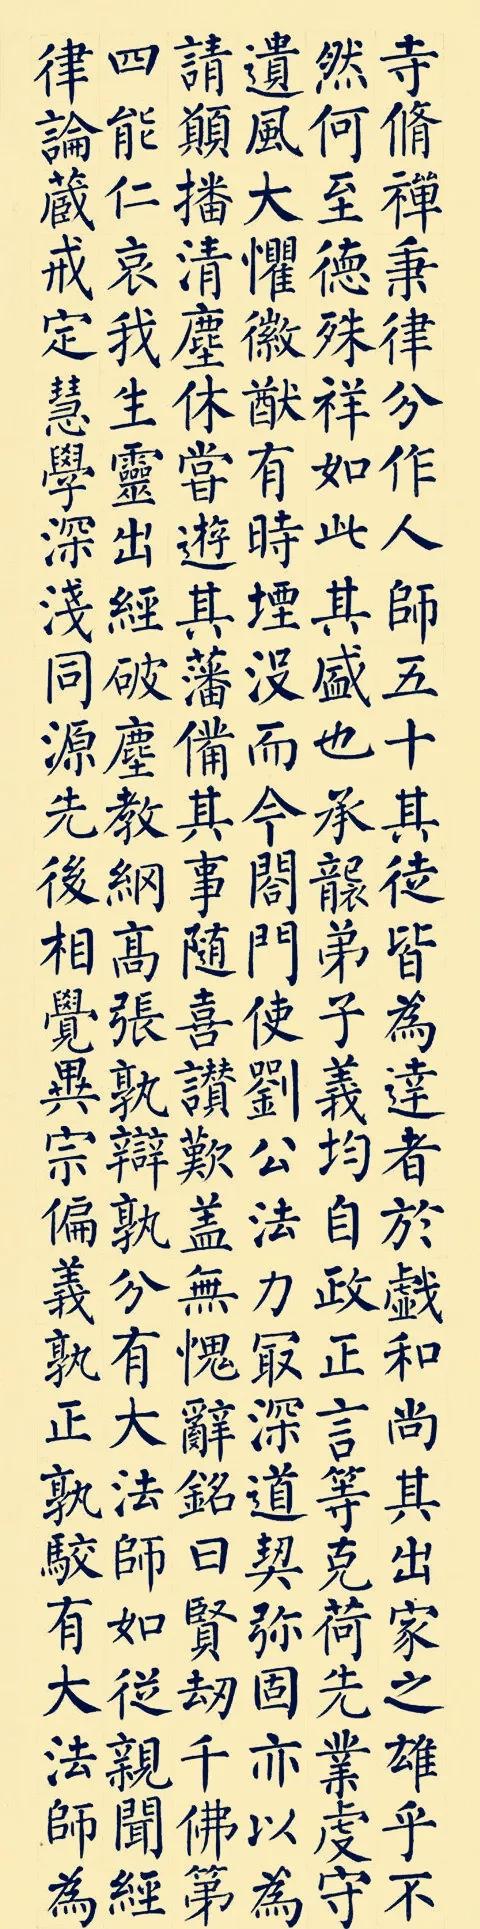 寺脩禪秉律分作人師五十其徒皆為達者於戯和尚其出家之雄乎不
然何至德殊祥如此其盛也承襲弟子義均自政正言等克荷先業虔守
遺風大懼徽猷有時堙没而今閤門使劉公法力冣深道契弥固亦以為
請願播清塵休甞遊其藩備其事随喜讃歎盖無愧辭銘曰賢劫千佛第
四能仁哀我生靈出經破塵教綱高張孰辯孰分有大法師如従親聞經
律論蔵戒定慧學深淺同源先後相覺異宗偏義孰正孰駮有大法師為